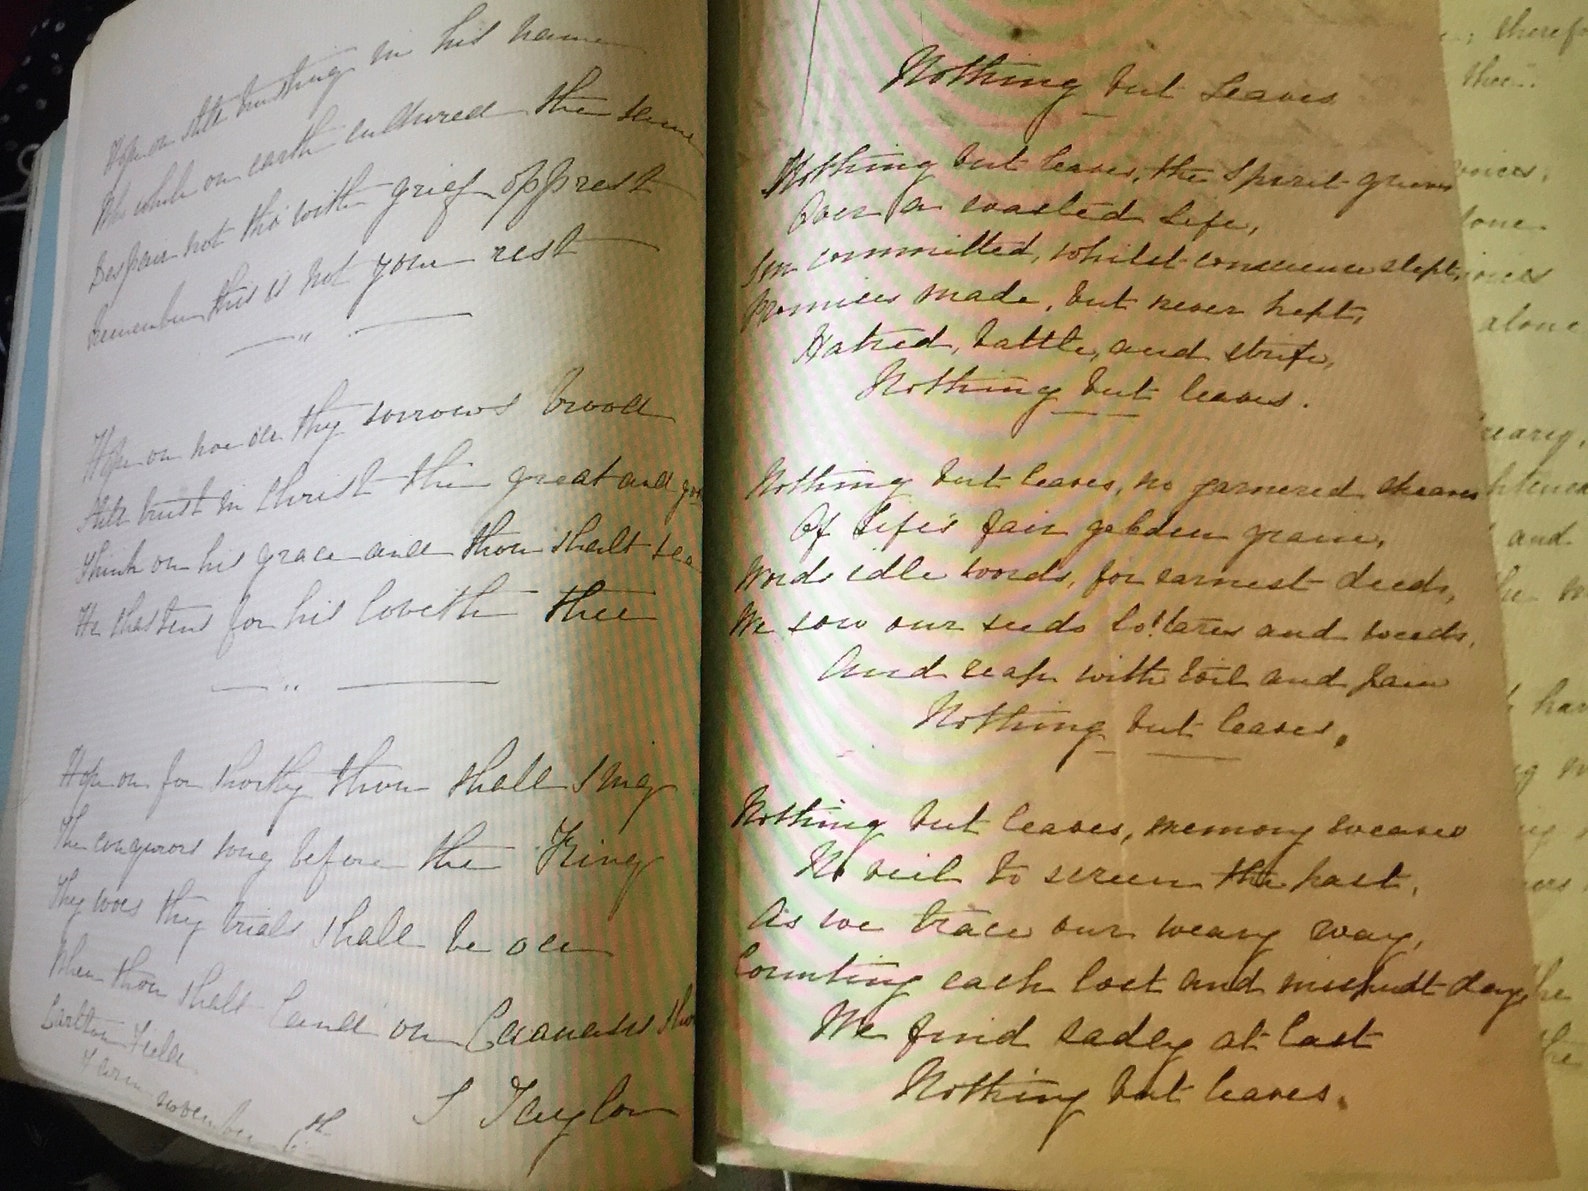 Hope on still trusting in his name
Who while on earth endured the same
Despair not tho with grief opprest
Remember this is not your rest
Hope on nor oer thy sorrows brood
Still trust in Christ the great and
Think on his grace and thou shalt
He chastens for his loveth thee
Hope on for shortly thou shall sing
The conquerors song before the King
Thy woes thy trials shall be oer
When thou shalt land on Canaans
Carlton
november 6th
S Taylor
Nothing but Leaves
Nothing but leaves, the Spirit grieves
Over a wasted Life,
Sin committed, whilst conscience slept,
Promises made, but never kept,
Hatred, battle, and strife,
Nothing but leaves.
Nothing but leaves, no garnered sheaves
Of Life's fair golden grain,
Words idle words, for earnest deeds,
We sow our seeds lo! tares and weeds,
And reap with toil and pain
Nothing but leaves.
Nothing but leaves, memory weaves
No veil to screen the past,
As we trace our weary way,
Counting each lost and misspent day
We find sadly at last
Nothing but leaves.
thee
voices,
alone
and